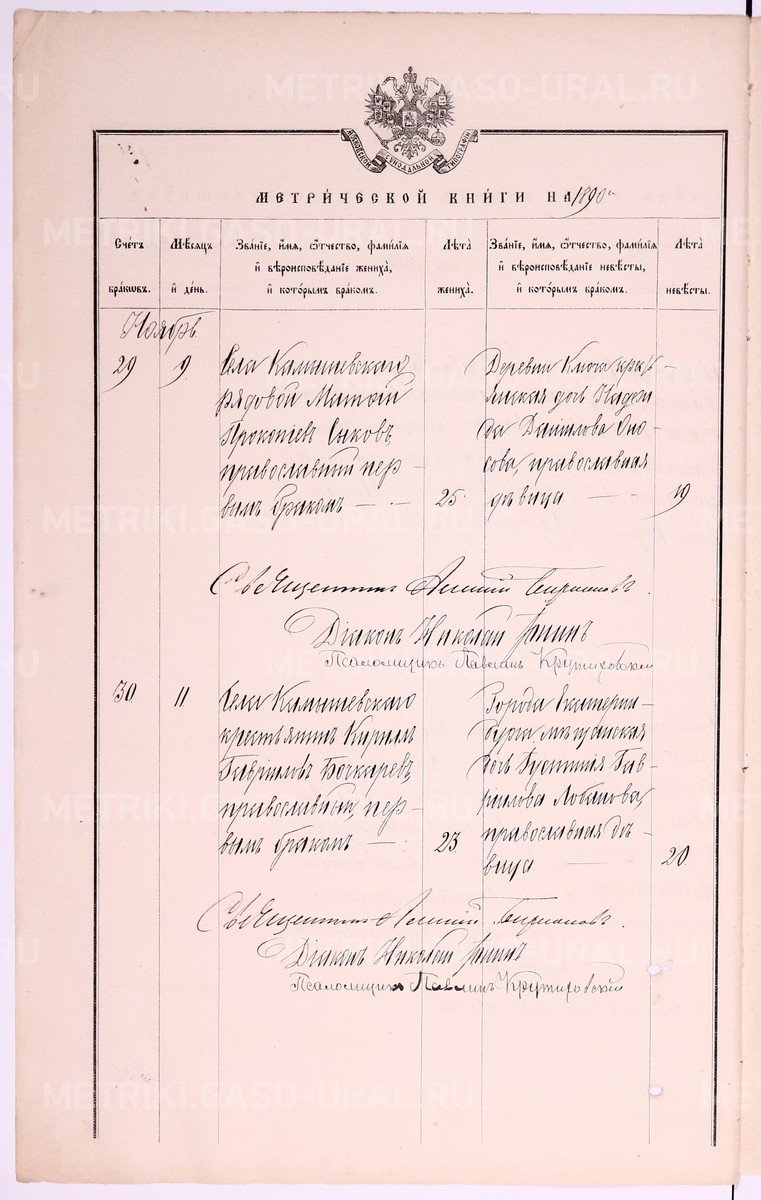 МОСКОВСКОЙ СѴНОДАЛЬНОЙ ТИПОГРАФІИ
МЕТРИЧЕСКОЙ КНИГИ НА 1890й
Счетъ браковъ.
Мѣсяцъ и день.
Званіе, имя, отчество, фамилія и вѣроисповѣданіе жениха, и которымъ бракомъ.
Лѣта жениха.
Званіе, имя, отчество, фамилія и вѣроисповѣданіе невѣсты, и которымъ бракомъ.
Лѣта невѣсты.
Ноябрь
29
9
Села Камышевскаго
рядовой
Прокопіевъ Сысковъ,
православный пер-
вымъ бракомъ
25.
Деревни Ключа кресть-
янская дочь Надеж-
да Данилова
православная
дѣвица
19
Священникъ
Діаконъ Николай
Псаломщикъ Павлинъ Кружиховскій
30
11
Села Камышевскаго
крестьянинъ Кирилъ
Гавриловъ Бочкаревъ,
православный, пер-
вымъ бракомъ
23.
Города Екатерин-
бурга мѣщанская
дочь Густинія Гав-
рилова Лобанова,
православная дѣ-
вица
20
Священникъ
Діаконъ Николай
Псаломщикъ Павлинъ Кружиховскій
METRIKI.GASO-URAL.RU